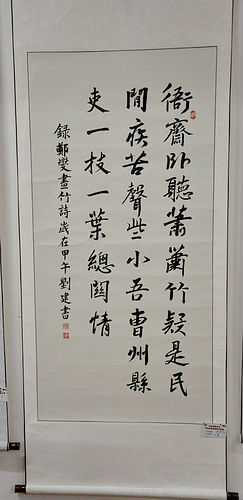 衙齋卧聽蕭蕭竹疑是民
間疾苦聲些小吾曹州縣
吏一枝一葉總關情
錄鄭燮畫竹詩歲在甲午劉建書